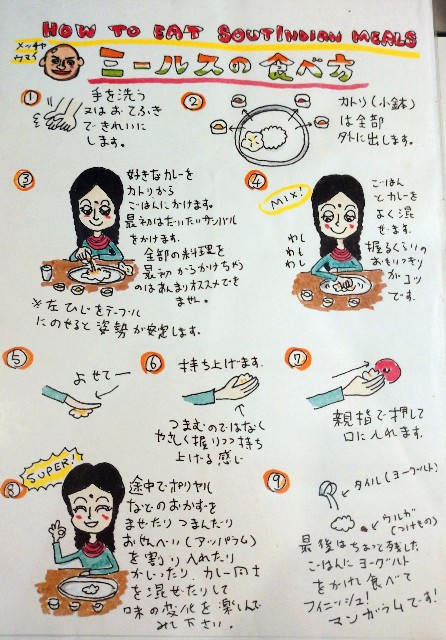 HOW TO EAT SOUTINDIAN MEALS
メッチャ
ウマイ
ミールスの食べ方
①
手を洗う
又はおてふき
できれいに
します。
②
カトリ(小鉢)
は全部
外に出します。
③
好きなカレーを
カトリから
ごはんにかけます。
最初はだいたいサンバル
をかけます。
全部の料理を
最初からかけちゃう
のはあんまりオススメできません。
※左ひじをテーブル
にのせると姿勢が安定します。
④
MIX!
わし
わし
わし
ごはん
とカレーを
よく混
ぜます。
握るくらいの
おもいっきり
がコツ
です。
⑤
よせてー
⑥
持ち上げます。
つまむのではなく
やさしく握りつつ持ち
上げる感じ
⑦
親指で押して
口に入れます。
⑧
SUPER!
途中でポリヤル
などのおかずを
まぜたりつまんだり
おせんべい(アッパラム)
を割り入れたり
かじったり、カレー同士
を混ぜたりして
味の変化を楽しんで
みて下さい。
⑨
タイル(ヨーグルト)
ウルガ
(つけもの)
最後はちょっと残した
ごはんにヨーグルト
をかけ食べて
フィニッシュ!
マンガラムです!